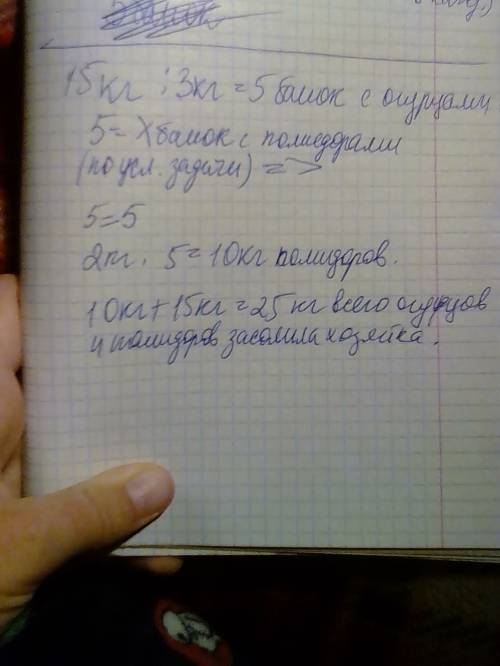 15кг : 3кг = 5 банок с огурцами
5 = X банок с помидорами
(по усл. задачи) =>
5 = 5
2кг · 5 = 10кг помидоров.
10кг + 15кг = 25 кг всего огурцов
и помидоров засолила хозяйка.